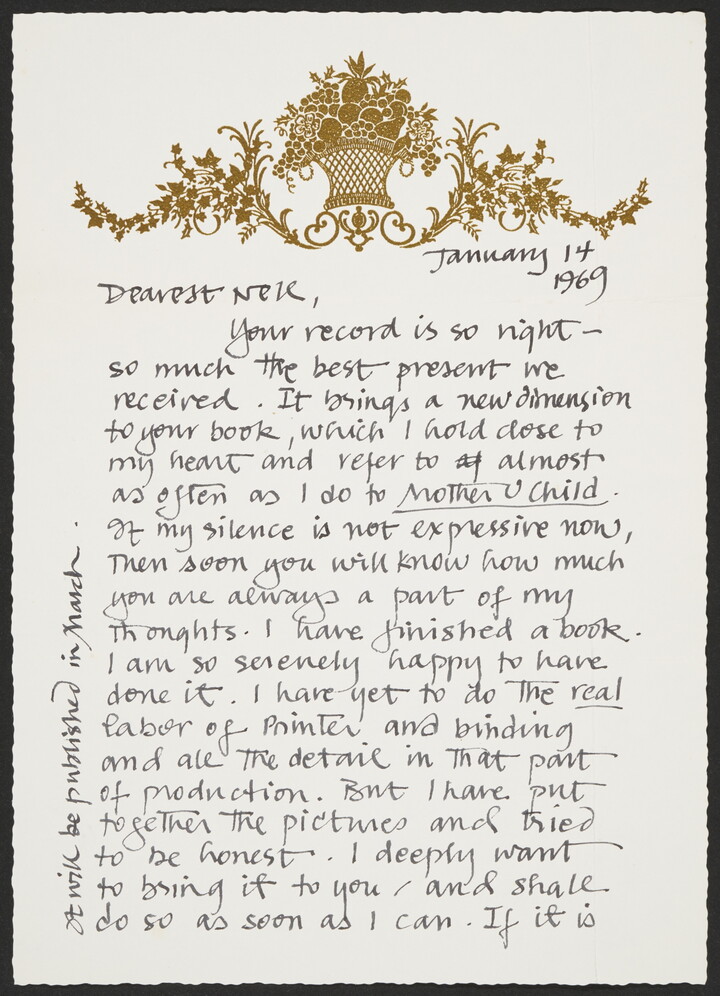 January 14
1969
Dearest Nell,
Your record is so right –
so much the best present we
received. It brings a new dimension
to your book, which I hold close to
my heart and refer to almost
as often as I do to Mother & Child.
If my silence is not expressive now,
Then soon you will know how much
you are always a part of my
thoughts. I have finished a book.
I am so serenely happy to have
done it. I have yet to do the real
labor of Printer and binding
and all the detail in that part
of production. But I have put
together the pictures and tried
to be honest. I deeply want
to bring it to you / and shall
do so as soon as I can. If it is
It will be published in March.